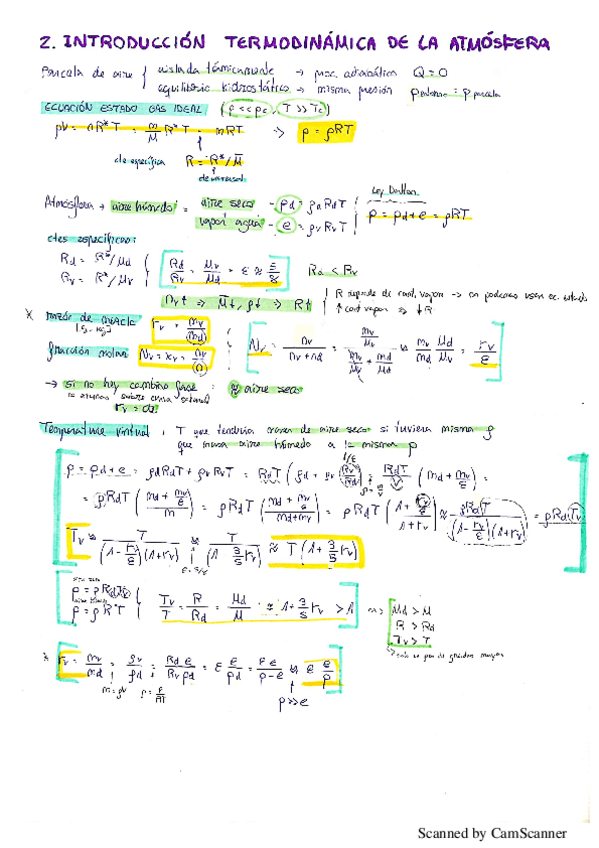 2. INTRODUCCIÓN TERMODINÁMICA DE LA ATMÓSFERA
Parcela de aire { aislada térmicamente → proc. adiabático Q = 0
equilibrio hidrostático → misma presión p entorno = p parcela
ECUACIÓN ESTADO GAS IDEAL (ρ << ρc, T >> Tc)
pV = nR*T = m/M R*T = mRT => p = ρRT
cte específica R = R*/M
cte universal
Atmósfera → aire húmedo = aire seco - pd = ρd Rd T
vapor agua - e = ρv Rv T
Ley Dalton
p = pd + e = ρRT
ctes específicas:
Rd = R*/Md
Rv = R*/Mv
Rd/Rv = Mv/Md = ε ≈ 5/8
Rd < Rv
nv↑ => M↓, ρ↓ => R↑
R depende de cant. vapor → no podemos usar ec. estado
↑ cant vapor => ↓ R
X razón de mezcla rv = mv/md
(g · kg)
fracción molar Nv = xv = nv/n
Nv = nv/(nv + nd) = (mv/Mv)/(mv/Mv + md/Md) ≈ mv Md/(md Mv) = rv/ε
→ si no hay cambio fase: ≈ aire seco
rv = cte
Temperatura virtual: T que tendría masa de aire seco si tuviera misma ρ
que masa aire húmedo a la misma p
p = pd + e = ρd Rd T + ρv Rv T = Rd T (ρd + ρv Rv/Rd) = RdT/V (md + mv/ε) =
1/ε
= ρ Rd T ((md + mv/ε)/m) = ρ Rd T ((md + mv/ε)/(md + mv)) = ρ Rd T ((1 + rv/ε)/(1 + rv)) ≈ ρ Rd T/((1 - rv/ε)(1 + rv)) = ρ Rd Tv
Tv ≈ T/((1 - rv/ε)(1 + rv)) ≈ T/(1 - 3/5 rv) ≈ T (1 + 3/5 rv)
ε = 5/8
p = ρ Rd Tv
p = ρ R T
Tv/T = R/Rd = Md/M ≈ 1 + 3/5 rv > 1 => Md > M
R > Rd
Tv > T
rv = mv/md = ρv/ρd = Rd e/(Rv pd) = ε e/pd = ε e/(p - e) ≈ ε e/p
m = ρV ρ = p/RT
p >> e
Scanned by CamScanner